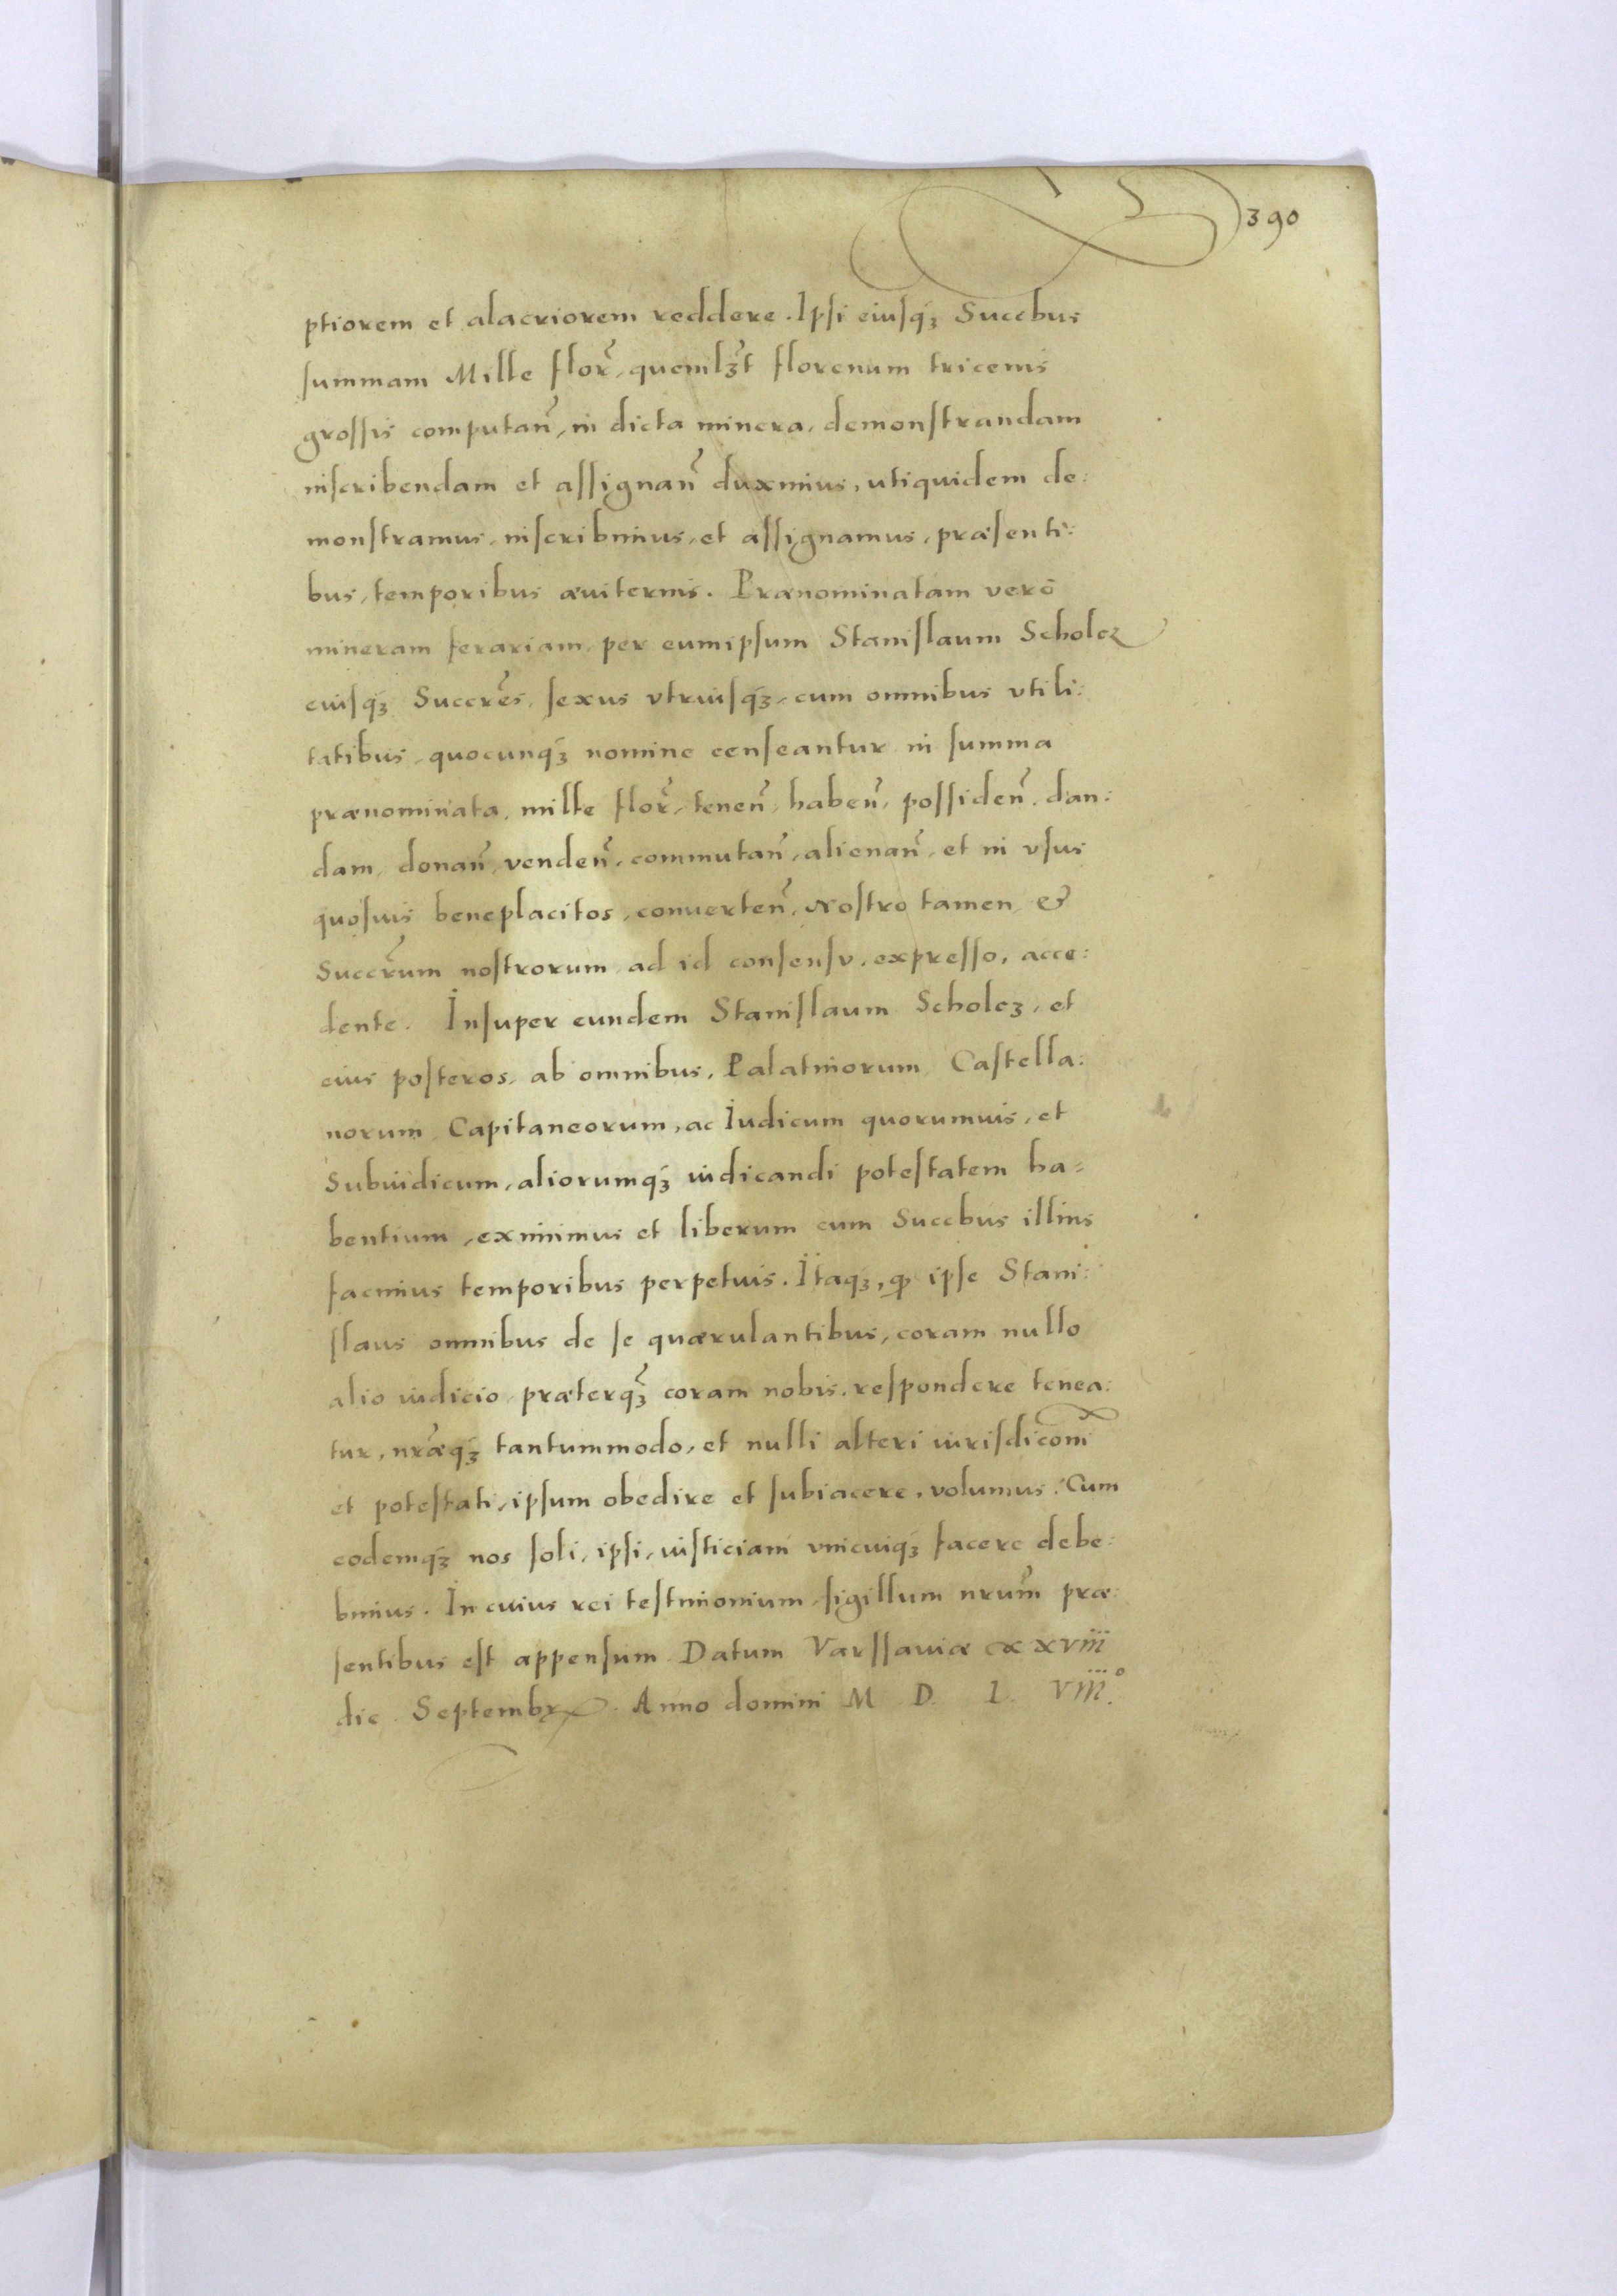 390
ptiorem et alacriorem reddere. Ipsi eiusq́ꝫ Succbus
summam Mille florᷣ, quemlꝫt florenum tricenis
grossis computan̄, in dicta minera, demonstrandam
inscribendam et assignan̄ duximus, utiquidem de:
monstramus, inscribimus, et assignamus, præsenti:
bus, temporibus æuiternis. Prænominatam verò
mineram ferariam, per eumipsum Stanislaum Scholcz
eiusq́ꝫ Succr̄es, sexus vtriusq́ꝫ, cum omnibus vtili:
tatibus, quocunq́ꝫ nomine censeantur in summa
prænominata, mille flor̄, tenen̄, haben̄, possiden̄, dan:
dam, donan̄, venden̄, commutan̄, alienan̄, et in vsus
quosuis beneplacitos, conuerten̄, Nostro tamen &
Succr̄um nostrorum, ad id consensv, expresso, acce:
dente. Insuper eundem Stanislaum Scholcz, et
eius posteros, ab omnibus, Palatinorum, Castella:
norum, Capitaneorum, ac Iudicum quorumuis, et
Subiudicum, aliorumq́ꝫ iudicandi potestatem ha=
bentium, eximimus et liberum cum Succbus illius
facimus temporibus perpetuis. Itaqꝫ, ꝙ ipse Stani:
slaus omnibus de se quærulantibus, coram nullo
alio iudicio, præterq̄ꝫ coram nobis, respondere tenea:
tur, nr̄æq́ꝫ tantummodo, et nulli alteri iurisdiconi
et potestati, ipsum obedire et subiacere, volumus. Cum
eodemq́ꝫ nos soli, ipsi, iusticiam vnicuiqꝫ facere debe:
bimus. In cuius rei testimonium, sigillum nrum̄ præ:
sentibus est appensum. Datum Varssauiæ xxviii
die. Septembr. Anno domini M D L Viii.°